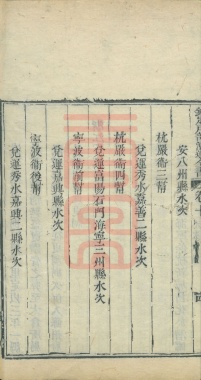 安八州縣水次
杭嚴衛三幫
兌運秀水嘉善二縣水次
杭嚴衛四幫
兌運富陽石門海寧三州縣水次
寧波衛前幫
兌運嘉興縣水次
寧波衛後幫
兌運秀水嘉興二縣水次